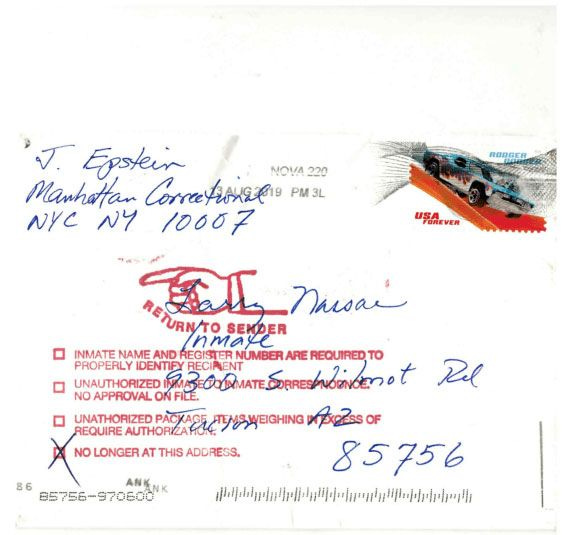 J. Epstein
Manhattan Correctional
NYC NY 10007
NOVA 220
13 AUG 2019 PM 3L
RODGER DODGER
USA
FOREVER
Larry Nassar
RETURN TO SENDER
Inmate
INMATE NAME AND REGISTER NUMBER ARE REQUIRED TO
PROPERLY IDENTIFY RECIPIENT
9300 S. Wilmot Rd
UNAUTHORIZED INMATE TO INMATE CORRESPONDENCE.
NO APPROVAL ON FILE.
Tucson AZ
UNATHORIZED PACKAGE, ITEMS WEIGHING IN EXCESS OF
REQUIRE AUTHORIZATION.
X NO LONGER AT THIS ADDRESS.
85756
86
ANK
ANK
85756-970600